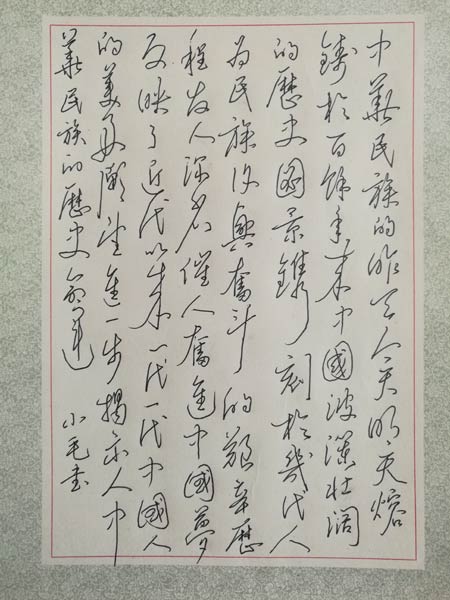 中華民族的昨天今天明天熔
鑄於百餘年来中國波瀾壯闊
的歷史圖景鐫刻於幾代人
為民族復興奮斗的艱辛歷
程发人深省催人奮進中國夢
反映了近代以来一代一代中國人
的美好願望進一步揭示人中
華民族的歷史命運
小毛書